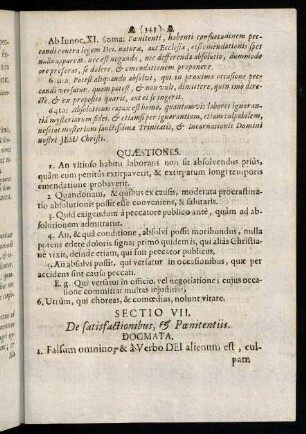 (343)
Ab Innoc. XI. 60ma: Pœnitenti, habenti consuetudinem pec-
candi contra legem Dei, natura, aut Ecclesiæ, etsi emendationis spes
nulla appareat, nec est neganda, nec differenda absolutio, dummodo
ore proferat, se dolere, & emendationem proponere.
61ma. Potest aliquando absolvi, qui in proxima occasione pec-
candi versatur, quam potest, & non vult, dimittere, quin imo dire-
ctè, & ex proposito quærit, aut ei se ingerit.
64ta: Absolutionis capax est homo, quantumvis laboret ignoran-
tiâ mysteriorum fidei, & etiamsi per ignorantiam, etiam culpabilem,
nesciat mysterium sanctissimæ Trinitatis, & Incarnationis Domini
nostri JESU Christi.
QUÆSTIONES.
1. An vitioso habitu laborans non sit absolvendus priùs,
quàm eum penitùs extirpaverit, & extirpatum longi temporis
emendatione probaverit.
2 Quandonam, & quibus ex causis, moderata procrastina-
tio absolutionis possit esse conveniens, & salutaris.
3. Quid exigendum à peccatore publico antè, quàm ad ab-
solutionem admittatur.
4. An, & quâ conditione, absolvi possit moribundus, nulla
potens edere doloris signa; primò quidem is, qui aliàs Christia-
nè vixit, deinde etiam, qui fuit peccator publicus,
5. An absolvi possit, qui versatur in occasionibus, quæ per
accidens sint causa peccati.
E. g. Qui versatur in officio, vel negotiatione; cujus occa-
sione committat multas injustitias;
6. Utrùm, qui choreas, & comœdias, nolunt vitare.
SECTIO VII.
De satisfactionibus, & Pœnitentiis.
DOGMATA.
1. Falsum omnino, & à Verbo DEI alienum est, cul-
pam